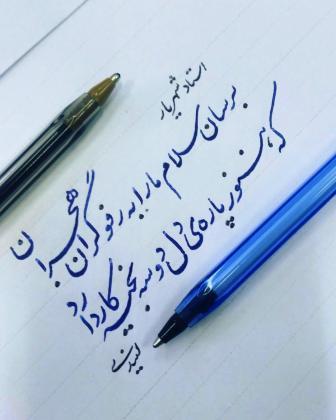 استاد شهریار
برسان سلام ما را به رفوگران هجران
که هنوز پاره‌ی دل دو سه بخیه کار دارد